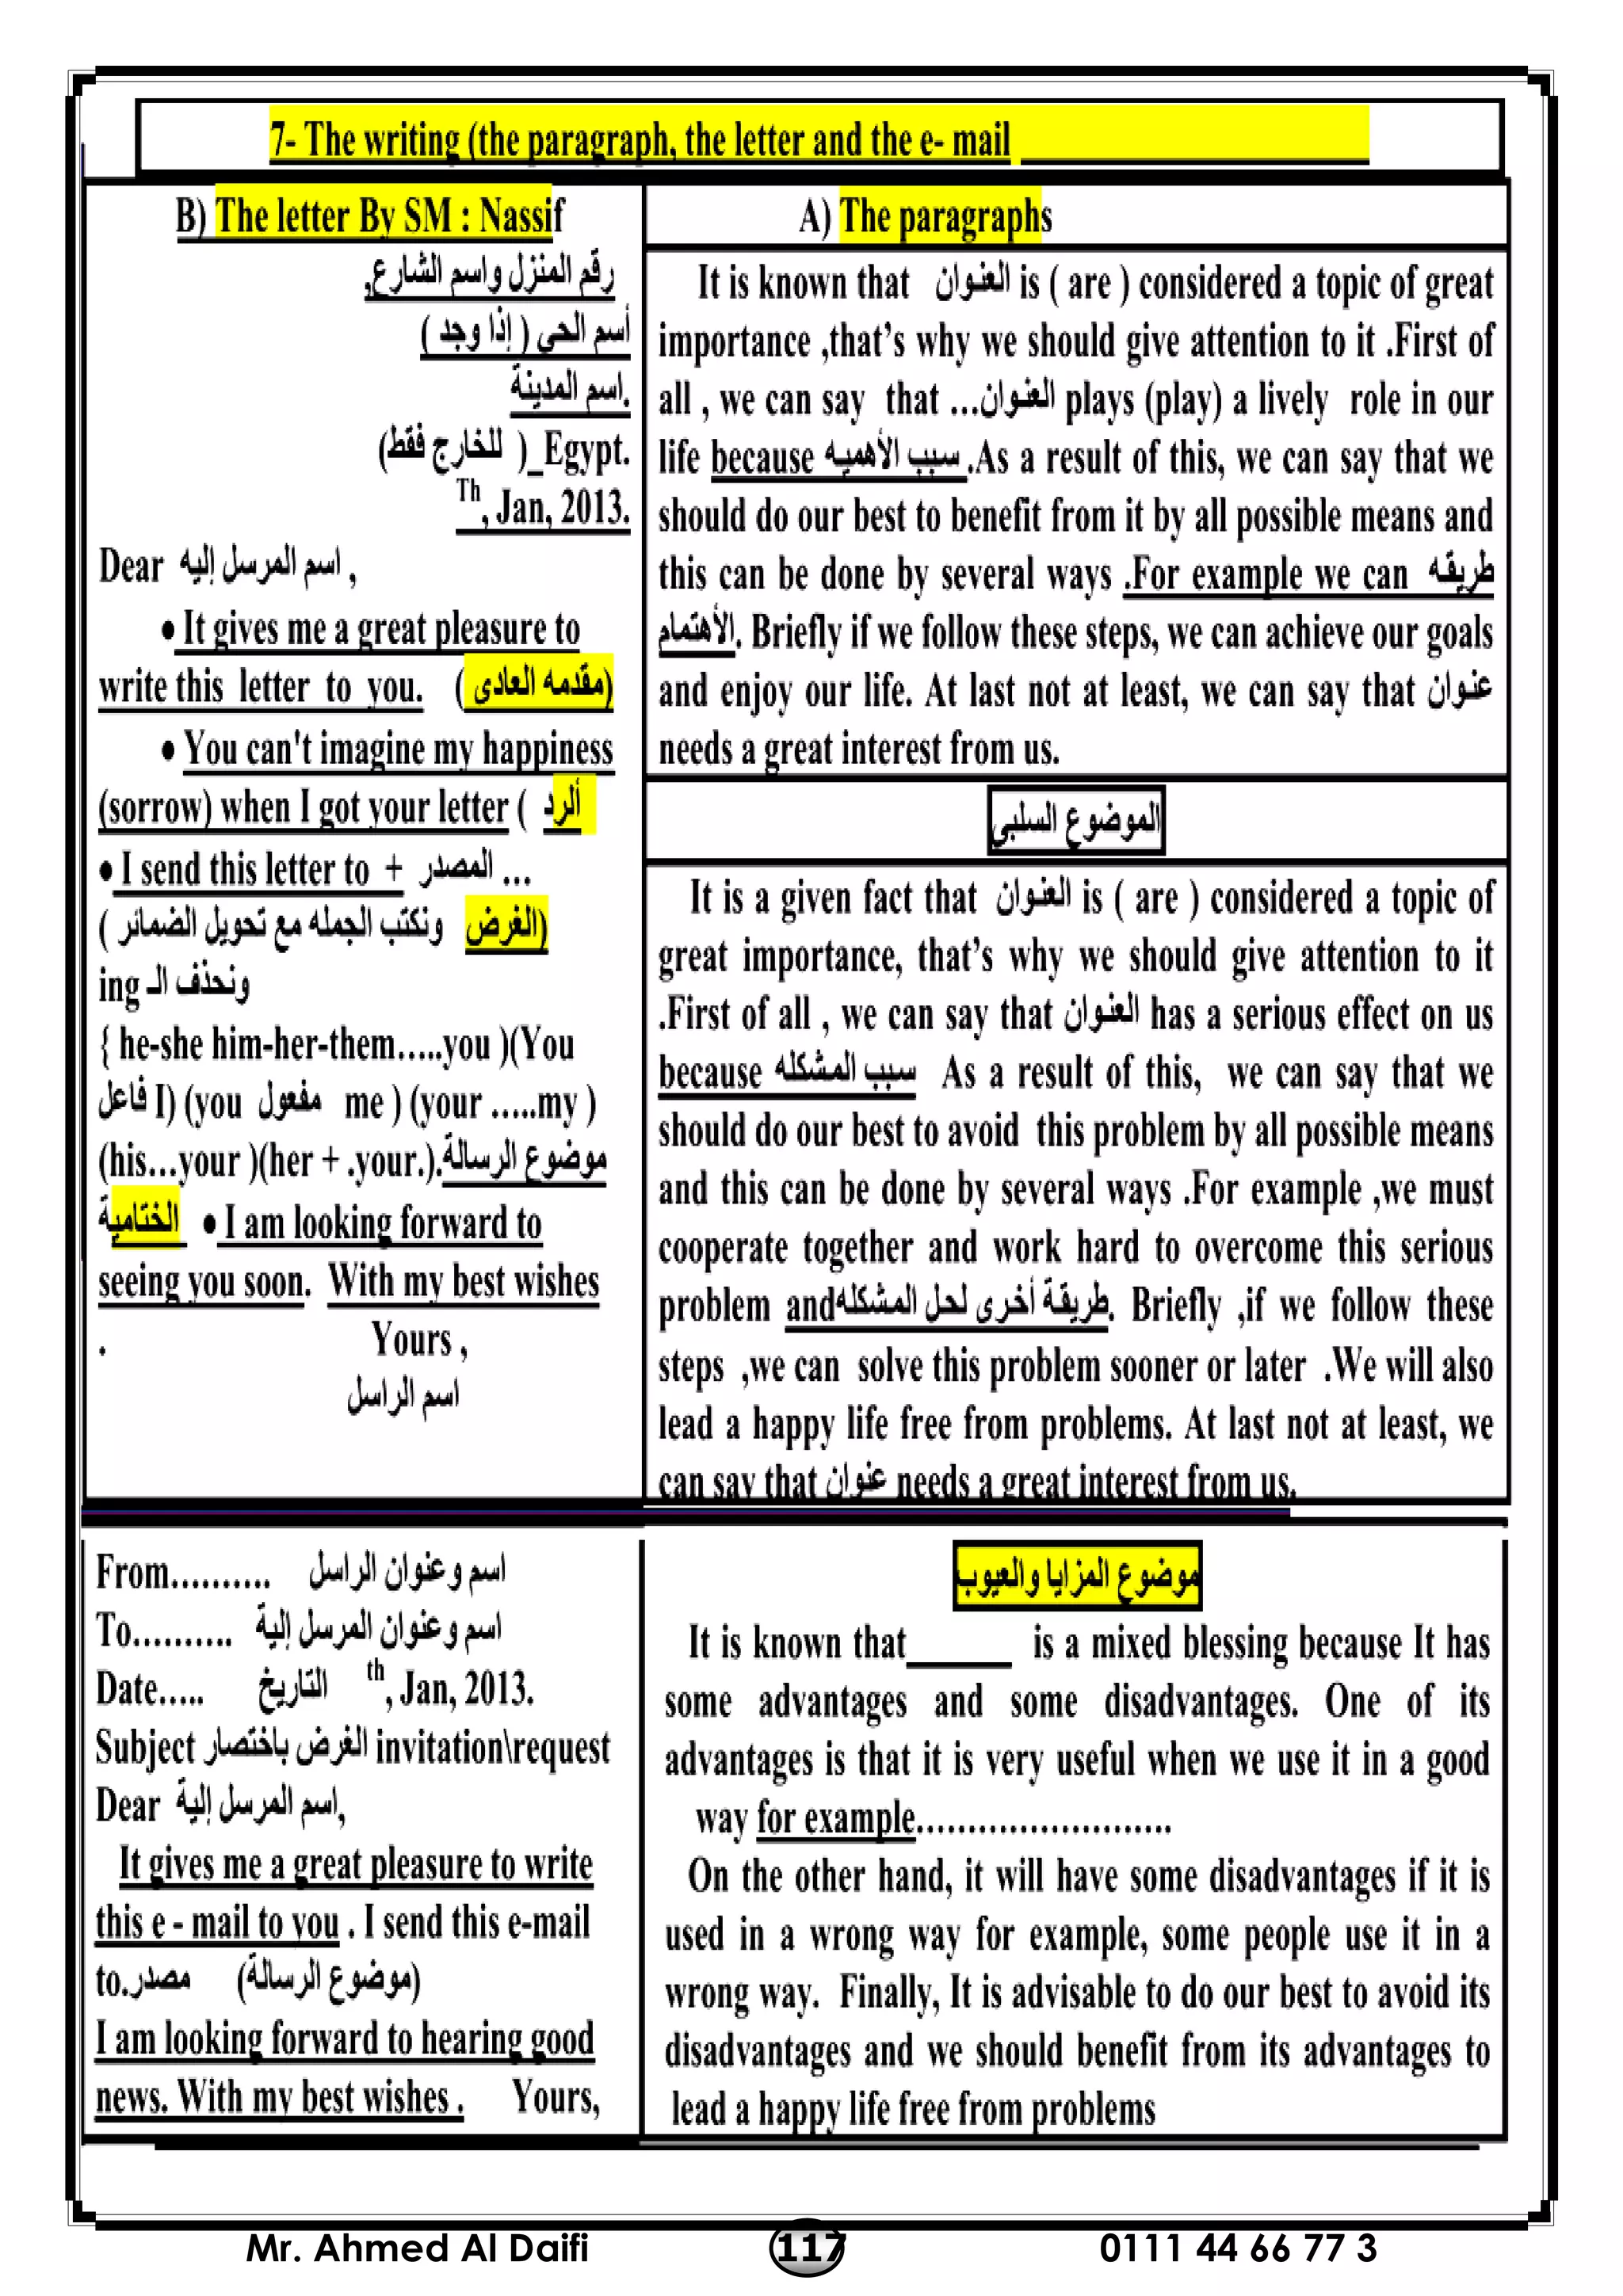 7- The writing (the paragraph, the letter and the e- mail
B) The letter By SM : Nassif
رقم المنزل واسم الشارع,
أسم الحي ( إذا وجد )
اسم المدينة.
(للخارج فقط )_Egypt.
Th, Jan, 2013.
Dear اسم المرسل إليه ,
• It gives me a great pleasure to
write this letter to you. ( مقدمه العادى)
• You can't imagine my happiness
(sorrow) when I got your letter ( ألرد
• I send this letter to + المصدر ...
(الغرض ونكتب الجمله مع تحويل الضمائر )
ing ونحذف الـ
{ he-she him-her-them…..you )(You
فاعل I) (you مفعول me ) (your …..my )
(his…your )(her + .your.).موضوع الرسالة
الختامية • I am looking forward to
seeing you soon. With my best wishes
. Yours ,
اسم الراسل
A) The paragraphs
It is known that العنوان is ( are ) considered a topic of great
importance ,that’s why we should give attention to it .First of
all , we can say that …العنوان plays (play) a lively role in our
life because سبب الأهميه .As a result of this, we can say that we
should do our best to benefit from it by all possible means and
this can be done by several ways .For example we can طريقه
الأهتمام. Briefly if we follow these steps, we can achieve our goals
and enjoy our life. At last not at least, we can say that عنوان
needs a great interest from us.
الموضوع السلبي
It is a given fact that العنوان is ( are ) considered a topic of
great importance, that’s why we should give attention to it
.First of all , we can say that العنوان has a serious effect on us
because سبب المشكله As a result of this, we can say that we
should do our best to avoid this problem by all possible means
and this can be done by several ways .For example ,we must
cooperate together and work hard to overcome this serious
problem and طريقة أخرى لحل المشكله. Briefly ,if we follow these
steps ,we can solve this problem sooner or later .We will also
lead a happy life free from problems. At last not at least, we
can say that عنوان needs a great interest from us.
From………. اسم وعنوان الراسل
To………. اسم وعنوان المرسل إلية
Date….. التاريخ th, Jan, 2013.
Subject الغرض باختصار invitation\request
Dear اسم المرسل إلية,
It gives me a great pleasure to write
this e - mail to you . I send this e-mail
to.مصدر (موضوع الرسالة)
I am looking forward to hearing good
news. With my best wishes . Yours,
موضوع المزايا والعيوب
It is known that______ is a mixed blessing because It has
some advantages and some disadvantages. One of its
advantages is that it is very useful when we use it in a good
way for example…………………….
On the other hand, it will have some disadvantages if it is
used in a wrong way for example, some people use it in a
wrong way. Finally, It is advisable to do our best to avoid its
disadvantages and we should benefit from its advantages to
lead a happy life free from problems
Mr. Ahmed Al Daifi 117 0111 44 66 77 3